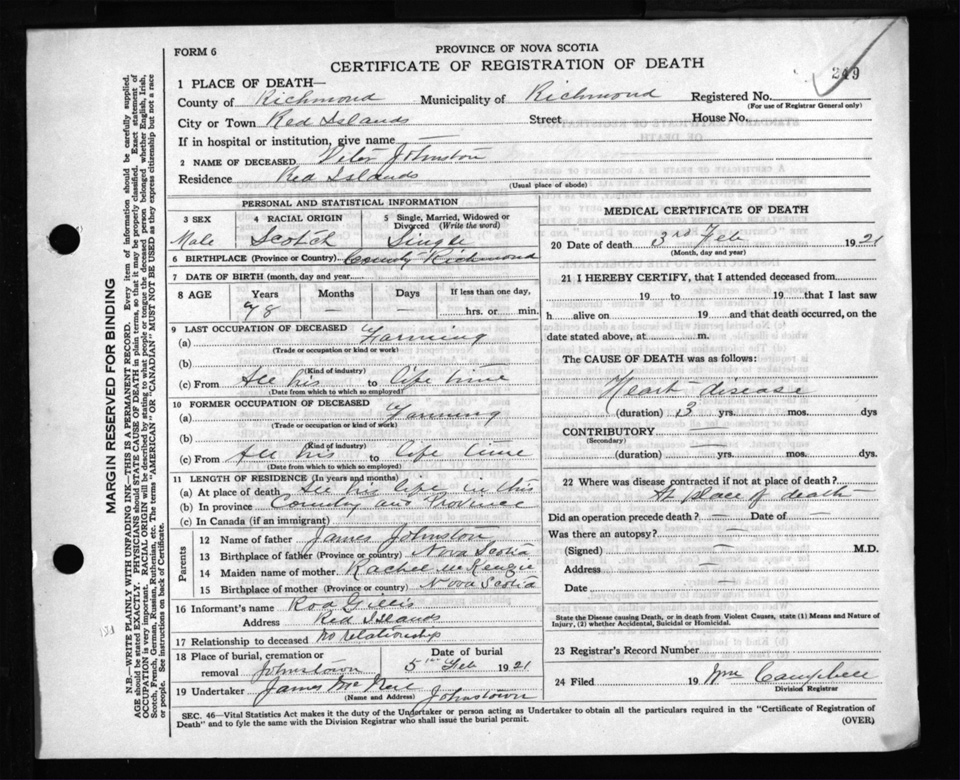 FORM 6
PROVINCE OF NOVA SCOTIA
CERTIFICATE OF REGISTRATION OF DEATH
249
1 PLACE OF DEATH—
County of Richmond Municipality of Richmond Registered No.
(For use of Registrar General only)
City or Town Red Islands Street House No.
If in hospital or institution, give name
2 NAME OF DECEASED Johnston
Residence Red Islands
(Usual place of abode)
PERSONAL AND STATISTICAL INFORMATION
3 SEX 4 RACIAL ORIGIN 5 Single, Married, Widowed or Divorced (Write the word)
Male Scotch Single
6 BIRTHPLACE (Province or Country) County Richmond
7 DATE OF BIRTH (month, day and year)
8 AGE Years Months Days If less than one day,
78 — — hrs. or min.
9 LAST OCCUPATION OF DECEASED
(a) Farming
(Trade or occupation or kind or work)
(b)
(Kind of industry)
(c) From All his to life time
(Date from which to which so employed)
10 FORMER OCCUPATION OF DECEASED
(a) Farming
(Trade or occupation or kind or work)
(b)
(Kind of industry)
(c) From All his to life time
(Date from which to which so employed)
11 LENGTH OF RESIDENCE (In years and months)
(a) At place of death All his life in this
(b) In province Country and Province
(c) In Canada (if an immigrant)
Parents
12 Name of father James Johnston
13 Birthplace of father (Province or country) Nova Scotia
14 Maiden name of mother Rachel McKenzie
15 Birthplace of mother (Province or country) Nova Scotia
16 Informant's name Rod Gillis
Address Red Islands
17 Relationship to deceased No relationship
18 Place of burial, cremation or removal Johnstown
Date of burial 5 Feb 1921
19 Undertaker James McNeil Johnstown
(Name and Address)
MEDICAL CERTIFICATE OF DEATH
20 Date of death 3rd Feb 1921
(Month, day and year)
21 I HEREBY CERTIFY, that I attended deceased from
19 to 19 that I last saw
h alive on 19 and that death occurred, on
date stated above, at m.
The CAUSE OF DEATH was as follows:
Heart disease
(duration) 3 yrs. mos. dys
CONTRIBUTORY —
(Secondary)
(duration) — yrs. — mos. dys.
22 Where was disease contracted if not at place of death?
At place of death
Did an operation precede death? — Date of —
Was there an autopsy? —
(Signed) — M.D.
Address —
Date —
State the Disease causing Death, or in death from Violent Causes, state (1) Means and Nature of Injury, (2) whether Accidental, Suicidal or Homicidal.
23 Registrar's Record Number
24 Filed 19 Wm Campbell
Division Registrar
SEC. 46—Vital Statistics Act makes it the duty of the Undertaker or person acting as Undertaker to obtain all the particulars required in the "Certificate of Registration of
Death" and to fyle the same with the Division Registrar who shall issue the burial permit.
(OVER)
MARGIN RESERVED FOR BINDING
N.B.—WRITE PLAINLY WITH UNFADING INK—THIS IS A PERMANENT RECORD. Every item of information should be carefully supplied.
AGE should be stated EXACTLY. PHYSICIANS should STATE CAUSE OF DEATH in plain terms, so that it may be properly classified. Exact statement of
OCCUPATION is very important. RACIAL ORIGIN will be described by stating to what people or tongue the deceased person belonged whether English, Irish,
Scotch, French, German, Russian, Ruthenian, etc. The terms "AMERICAN" OR "CANADIAN" MUST NOT BE USED as they express citizenship but not a race
or people. See instructions on back of Certificate.